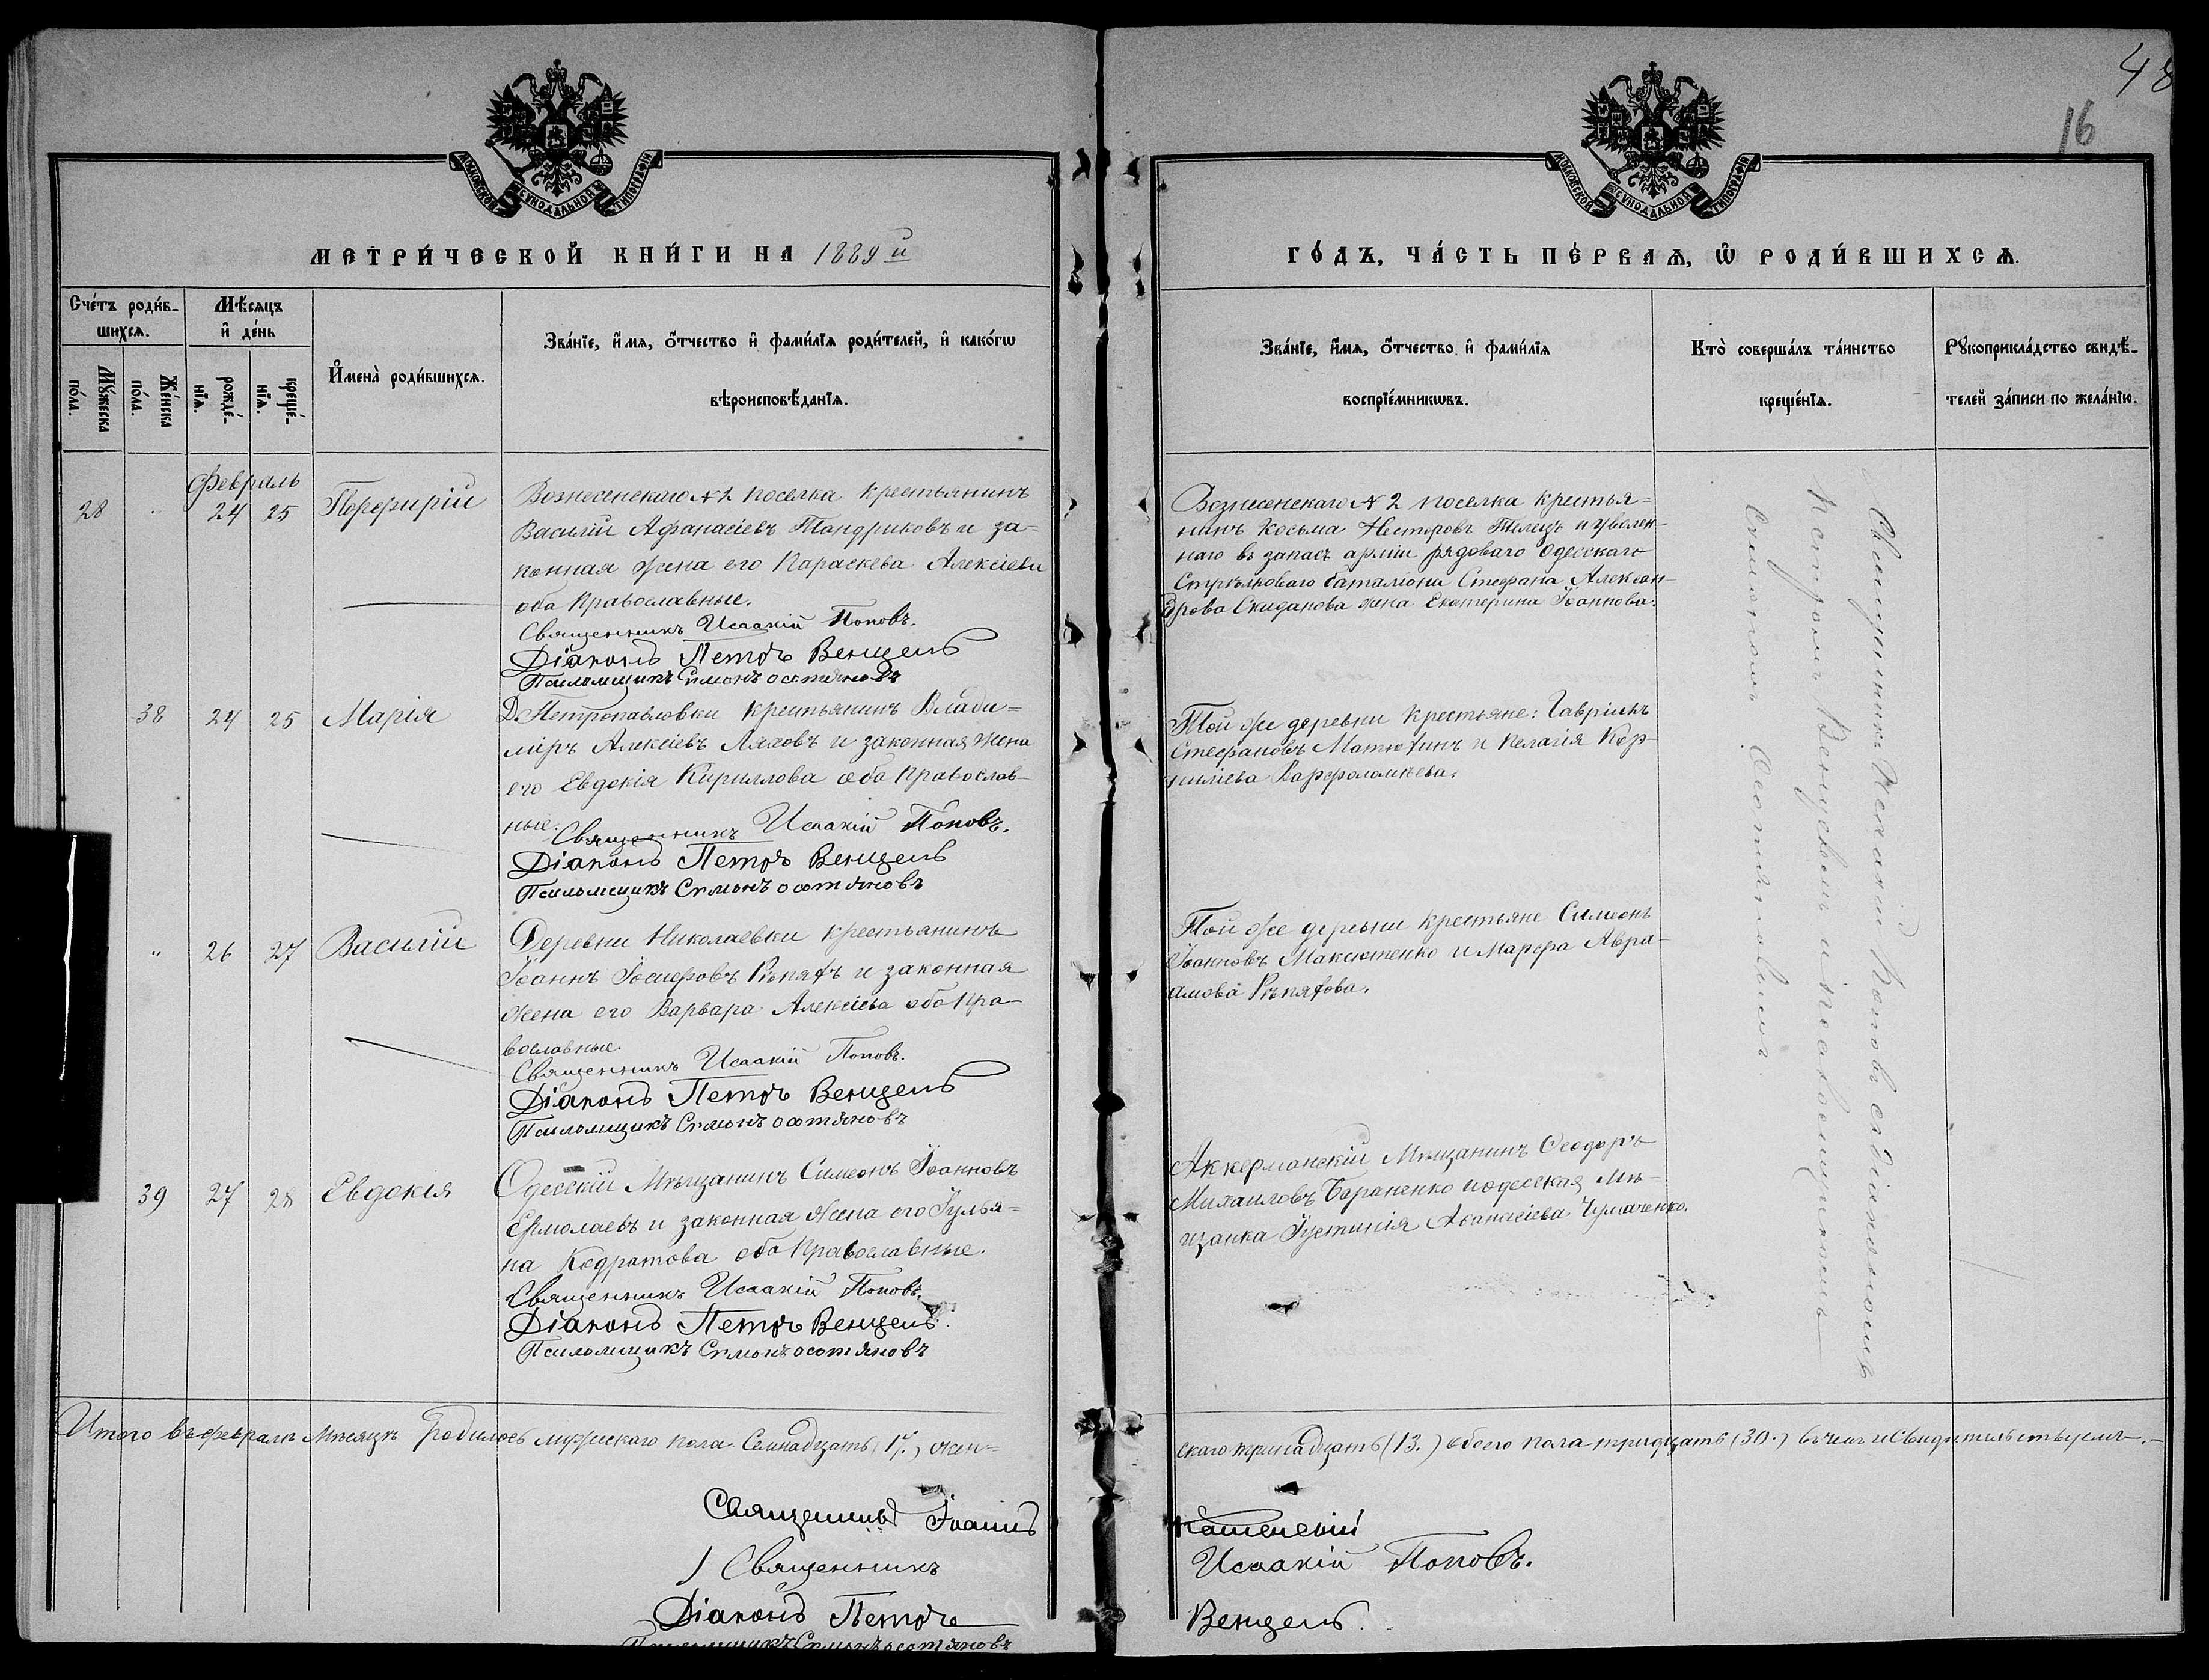 48
16
МОСКОВСКОЙ СѴНОДАЛЬНОЙ ТИПОГРАФІИ
МОСКОВСКОЙ СѴНОДАЛЬНОЙ ТИПОГРАФІИ
МЕТРИ́ЧЕСКОЙ КНИ́ГИ НА 1889 й
ГО́ДЪ, ЧА́СТЬ ПЕ́РВАѦ, Ѡ҆ РОДИ́ВШИХСѦ.
Сче́тъ роди́в-
шихсѧ.
Мꙋ́жеска
по́ла.
Же́нска
по́ла.
Мѣ́сѧцъ
и҆ де́нь
рожде́-
нїѧ.
креще́-
нїѧ.
И҆мена̀ роди́вшихсѧ.
Зва́нїе, и҆́мѧ, о҆́тчество и҆ фами́лїѧ роди́телей, и҆ како́гѡ
вѣроисповѣ́данїѧ.
Зва́нїе, и҆́мѧ, о҆́тчество и҆ фами́лїѧ
воспрїе́мникѡвъ.
Кто̀ соверша́лъ та́инство
креще́нїѧ.
Рꙋкоприкла́дство свидѣ́-
телей за́писи по жела́нїю.
Февраль
28 " 24 25 Порфирій
Вознесенскаго №2 поселка крестьянинъ
Василій Афанасіевъ Тандриковъ и за=
конная жена его Параскева Алексіева
оба православные.
Священникъ Исаакій Поповъ.
Діаконъ Петръ Венцель
Псаломщикъ Симонъ Осотяновъ
Вознесенскаго №2 поселка крестья=
нинъ Косьма Несторовъ Телецъ и уволен-
наго въ запасъ арміи рядоваго Одесскаго
Стрѣлковаго баталіона Стефана Алексан-
дрова Скиданова жена Екатерина Іоаннова.
38 24 25 Марія
Д. Петропавловки крестьянинъ Влади=
міръ Алексіевъ Ляховъ и законная жена
его Евдокія Кириллова оба православ-
ные.
Священникъ Исаакій Поповъ.
Діаконъ Петръ Венцель
Псаломщикъ Симонъ Осотяновъ
Той же деревни крестьяне: Гавріилъ
Стефановъ Матюхинъ и Пелагія Кор-
нилліева Варфоломѣева.
" 26 27 Василій
Деревни Николаевки крестьянинъ
Іоаннъ Іосифовъ Рѣпяхъ и законная
жена его Варвара Алексіева оба пра-
вославные.
Священникъ Исаакій Поповъ.
Діаконъ Петръ Венцель
Псаломщикъ Симонъ Осотяновъ
Той же деревни крестьяне Симеонъ
Іоанновъ Максютенко и Марфа Авра-
амова Рѣпяхова.
39 27 28 Евдокія
Одесскій Мѣщанинъ Симеонъ Іоанновъ
Ермолаевъ и законная жена его Іулья=
на Кодратова оба православные.
Священникъ Исаакій Поповъ.
Діаконъ Петръ Венцель.
Псаломщикъ Симонъ Осотяновъ
Аккерманскій Мѣщанинъ Ѳеодоръ
Михаиловъ Бараненко и одесская мѣ-
щанка Іустинія Аѳанасіева Чумаченко.
Священникъ Исаакій Поповъ съ діакономъ
Петромъ Венцелемъ и псаломщикомъ
Симономъ Осотяновымъ.
Итого въ февралѣ мѣсяцѣ родилось мужескаго пола семнадцать (17.) жен=
скаго тринадцать (13.) обоего пола тридцать (30.) въ чемъ и свидѣтельствуемъ.
Священникъ Іоаннъ
Священникъ Исаакій Поповъ.
Діаконъ Петръ Венцель.
Псаломщикъ Симонъ Осотяновъ